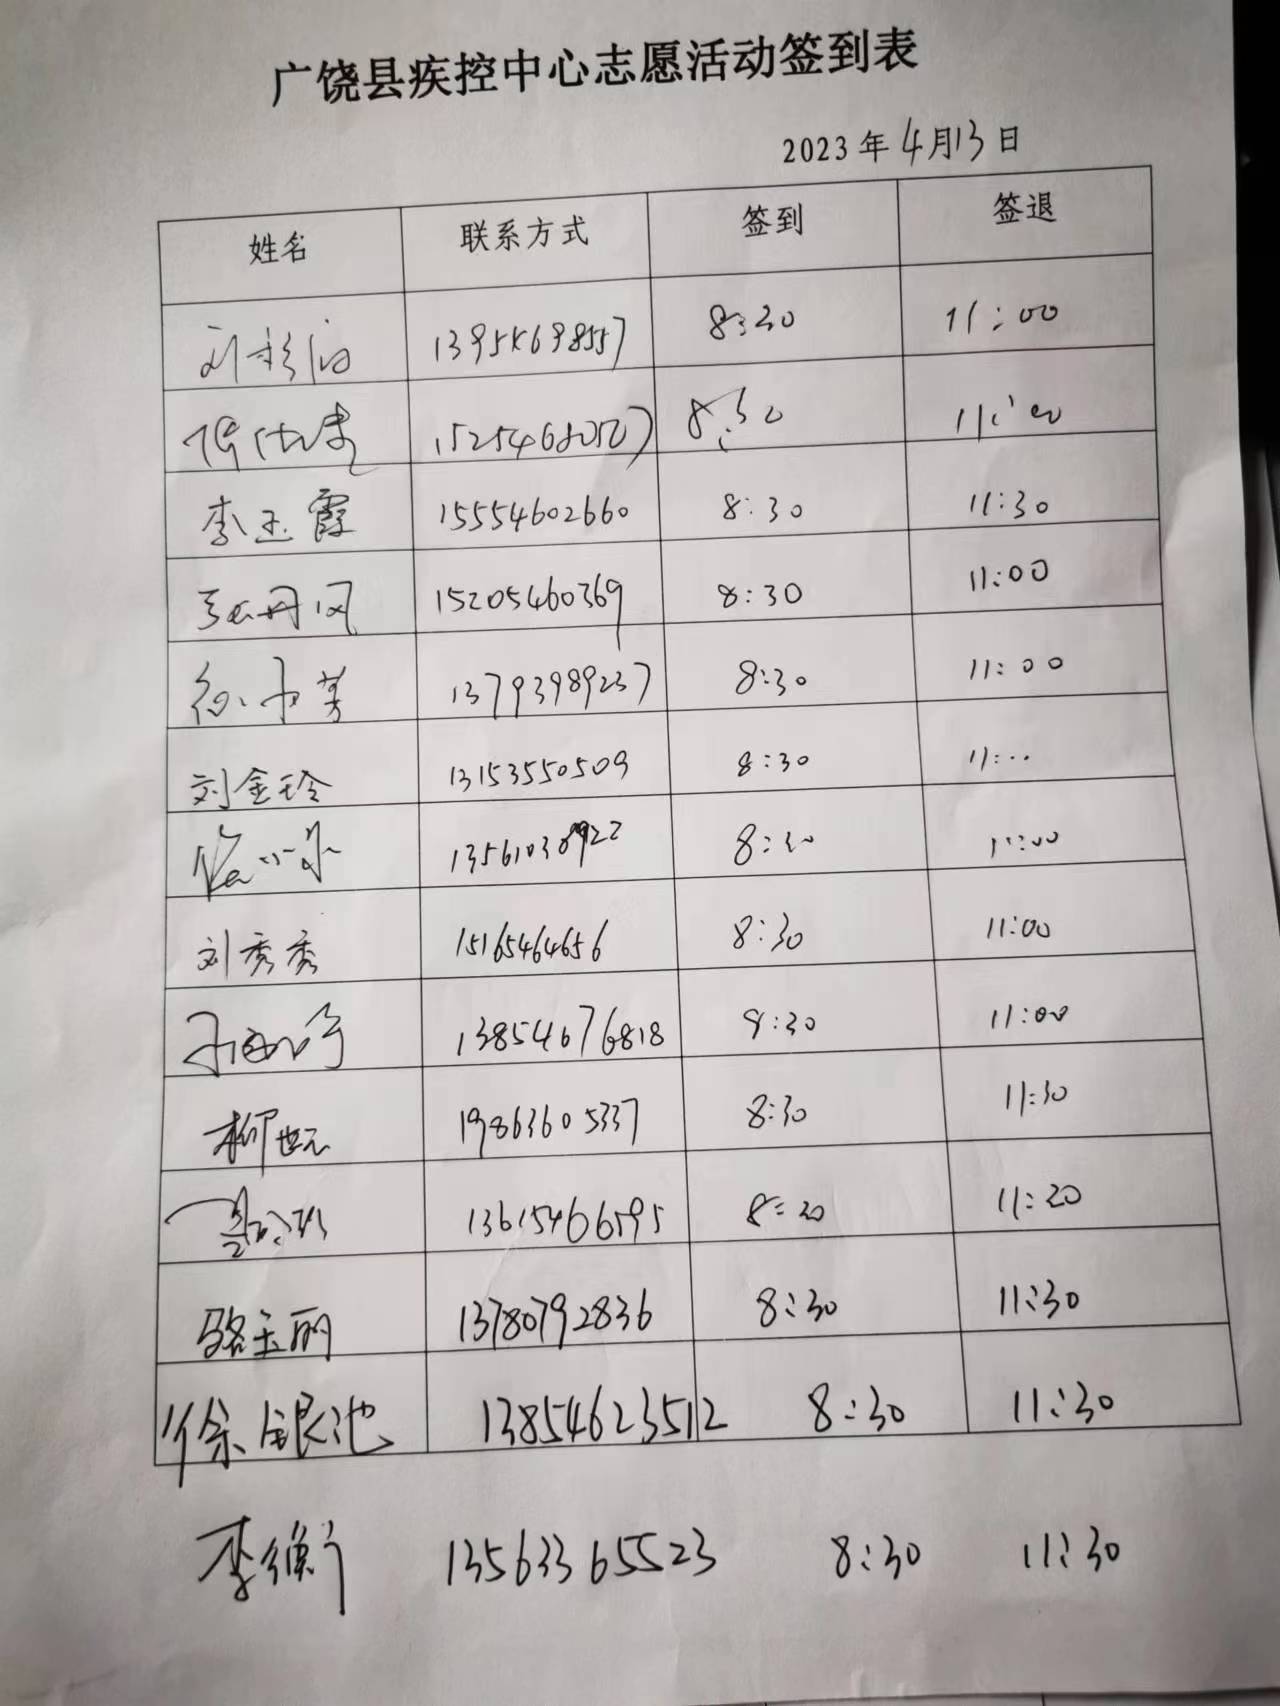 广饶县疾控中心志愿活动签到表
2023年4月13日
姓名 联系方式 签到 签退
刘 8:30 11:00
8:30 11:00
李玉霞 15554602660 8:30 11:30
张丹凤 15205460369 8:30 11:00
徐 芳 13793989237 8:30 11:00
刘金玲 13153550509 8:30 11:..
13561038922 8:30 11:00
刘秀秀 15165464656 8:30 11:00
13854676818 8:30 11:00
柳世元 19863605337 8:30 11:30
13615466595 8:30 11:20
骆玉丽 13780792836 8:30 11:30
徐银池 13854623512 8:30 11:30
李 13563365523 8:30 11:30